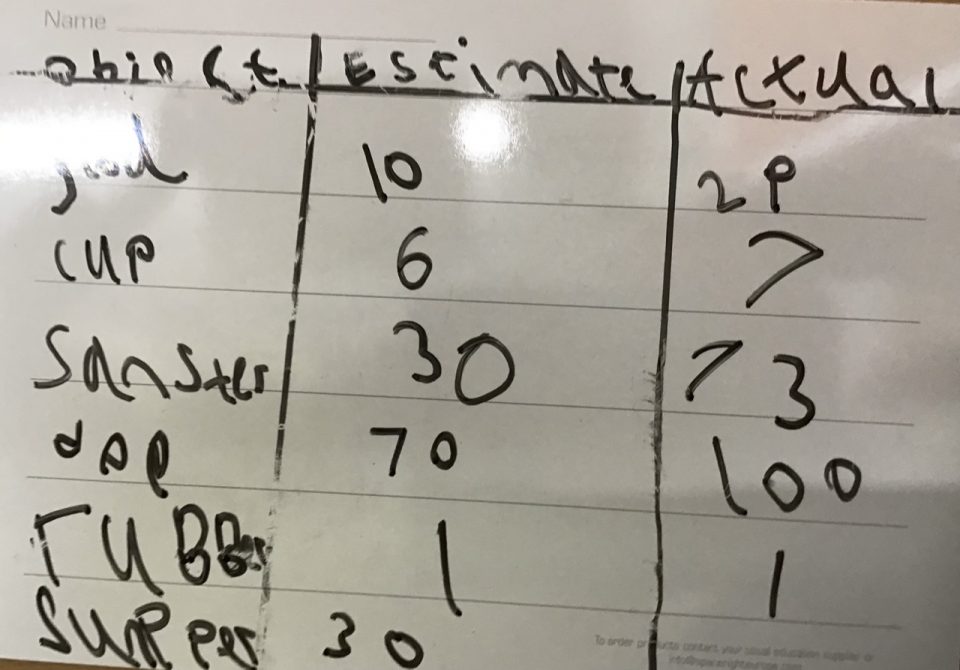 Name
Obiect Estimate Actual
10 29
cup 6 7
Sanster 30 73
70 100
TUBB 1 1
30
To order products contact your usual education supplier or